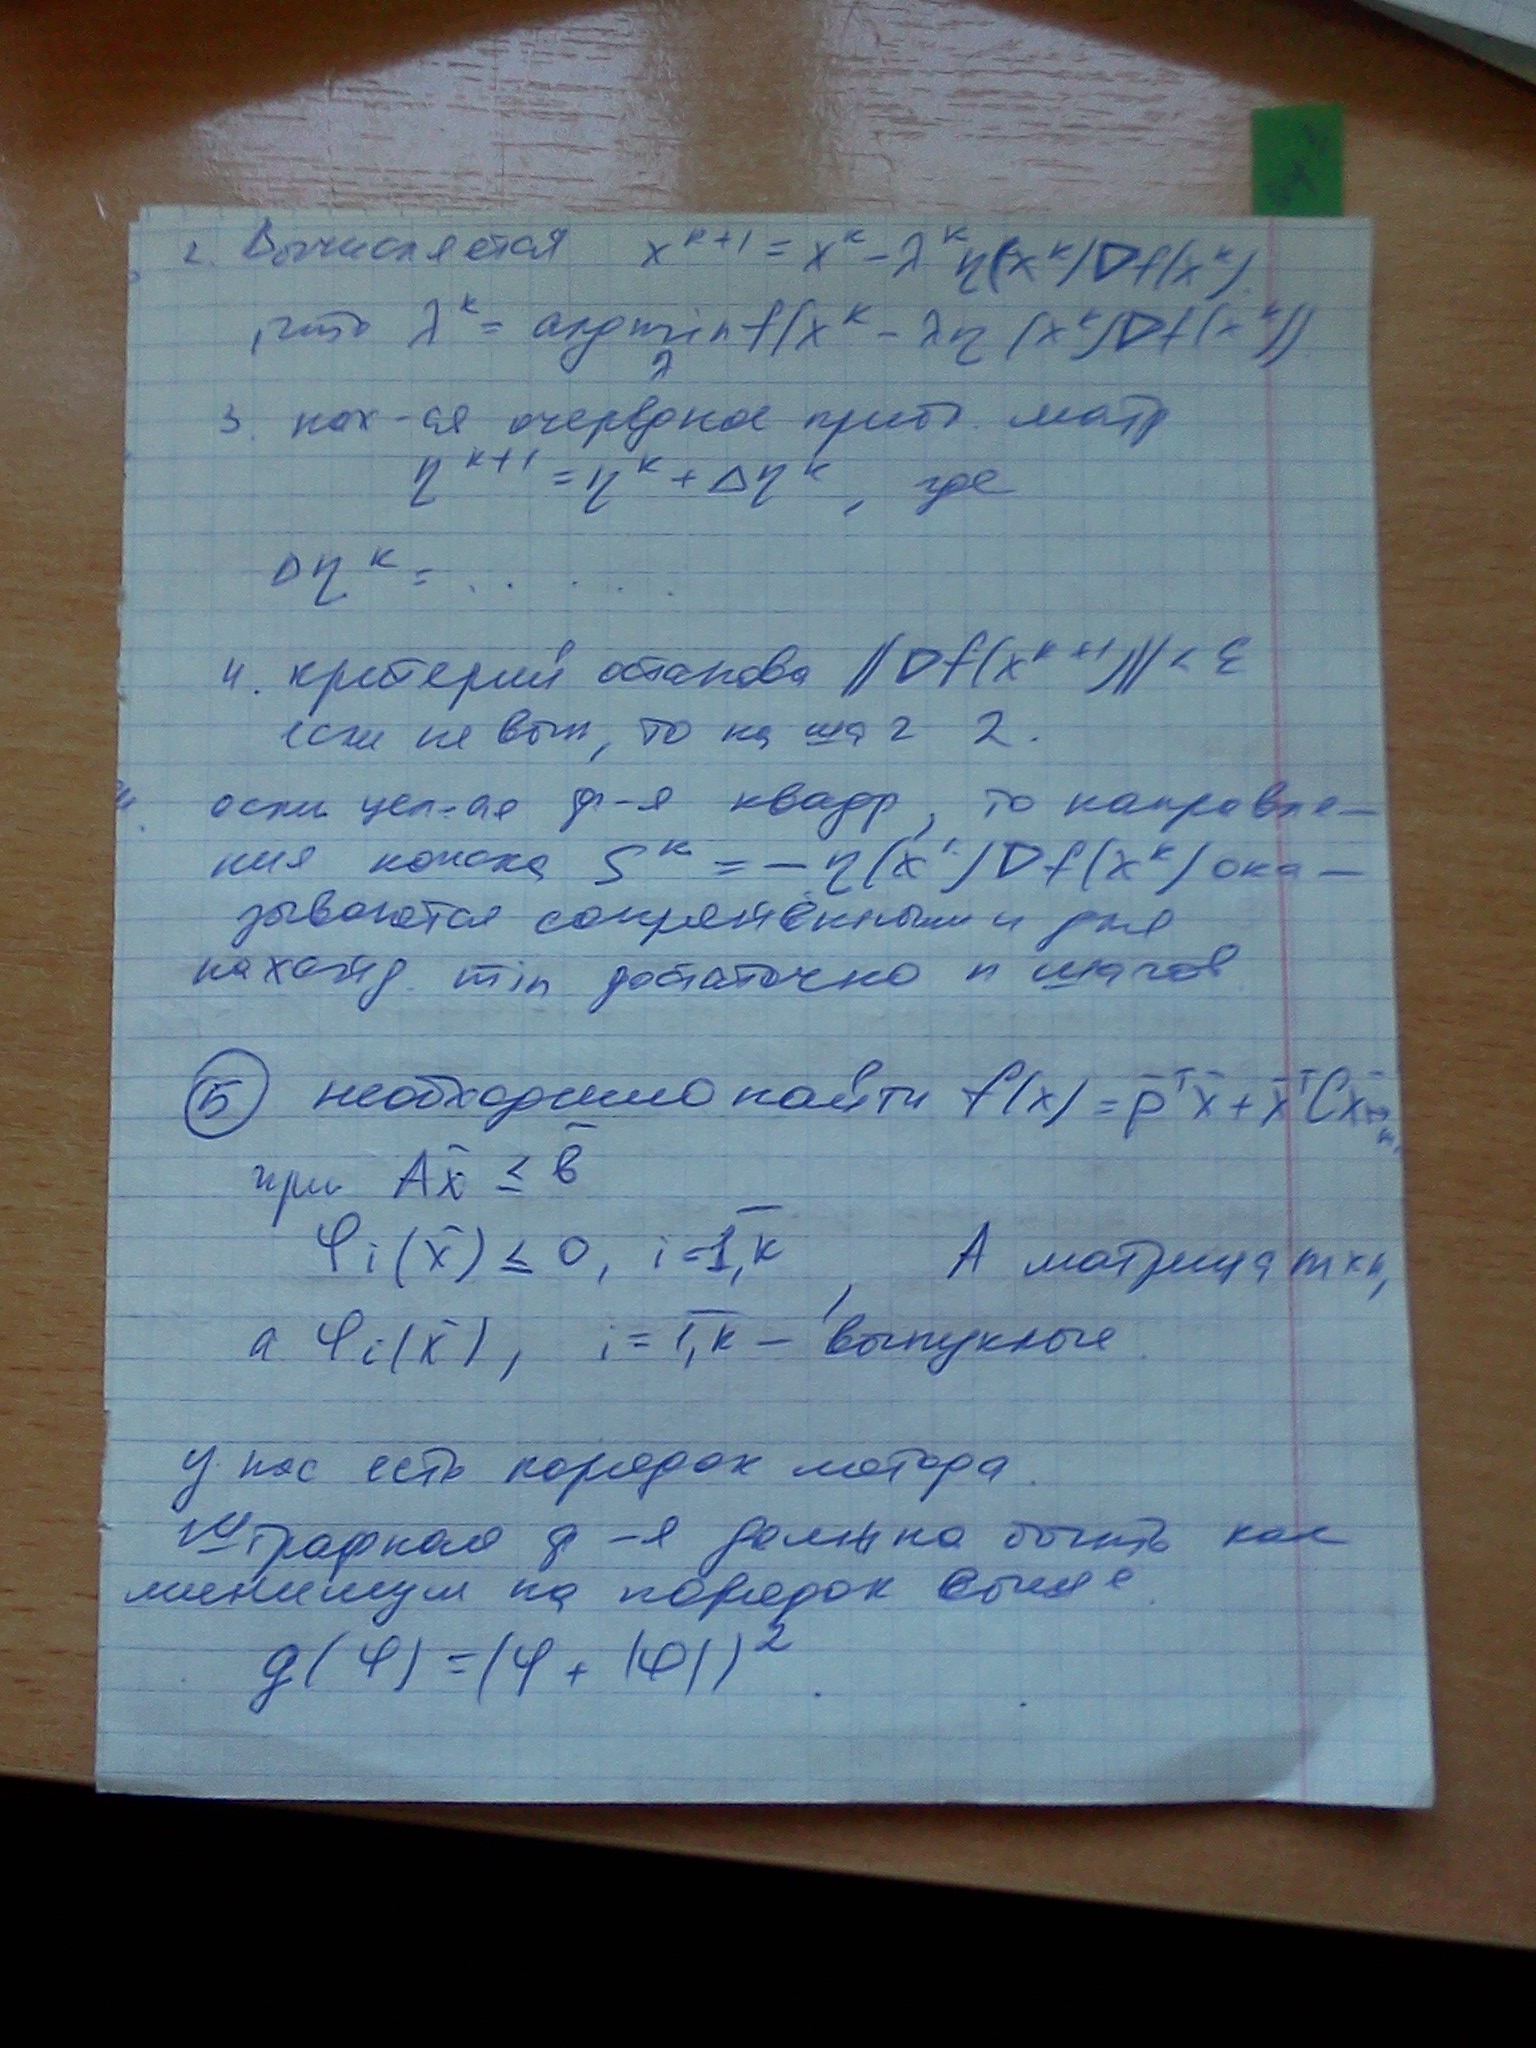 2. Вычисляется x^{k+1} = x^k - λ^k η(x^k)∇f(x^k).
, что λ^k = argmin_λ f(x^k - λη(x^k)∇f(x^k))
3. нах-ся очередное прибл. матр
η^{k+1} = η^k + Δη^k, где
Δη^k = . . . . .
4. критерий останова ||∇f(x^{k+1})|| < ε
если не вып, то на шаг 2.
если цел-ая ф-я квадр, то направле-
ния поиска S^k = -η(x^k)∇f(x^k) ока-
зываются сопряжёнными и для
нахожд. min достаточно n шагов
5 необходимо найти f(x) = p̄^T x̄ + x̄^T C x̄ →
при Ax̄ ≤ b̄
φi(x̄) ≤ 0, i = \overline{1,k}, A матрица m×n,
а φi(x̄), i = \overline{1,k} - выпуклые
у нас есть порядок метода.
Штрафная ф-я должна быть как
минимум на порядок выше.
g(φ) = (φ + |φ|)^2.